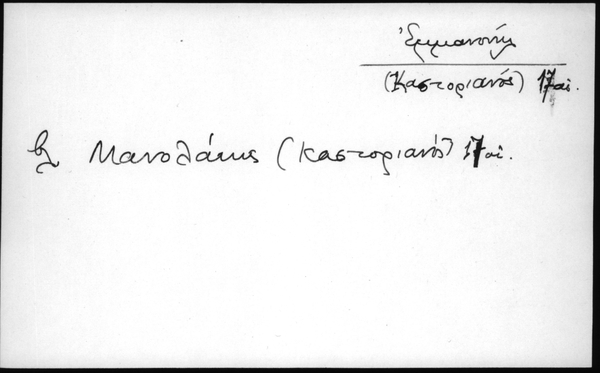 Ἐμμανουήλ
(Καστοριανός) 17 αἰ.
βλ Μανολάκης (Καστοριανός) 17 αἰ.